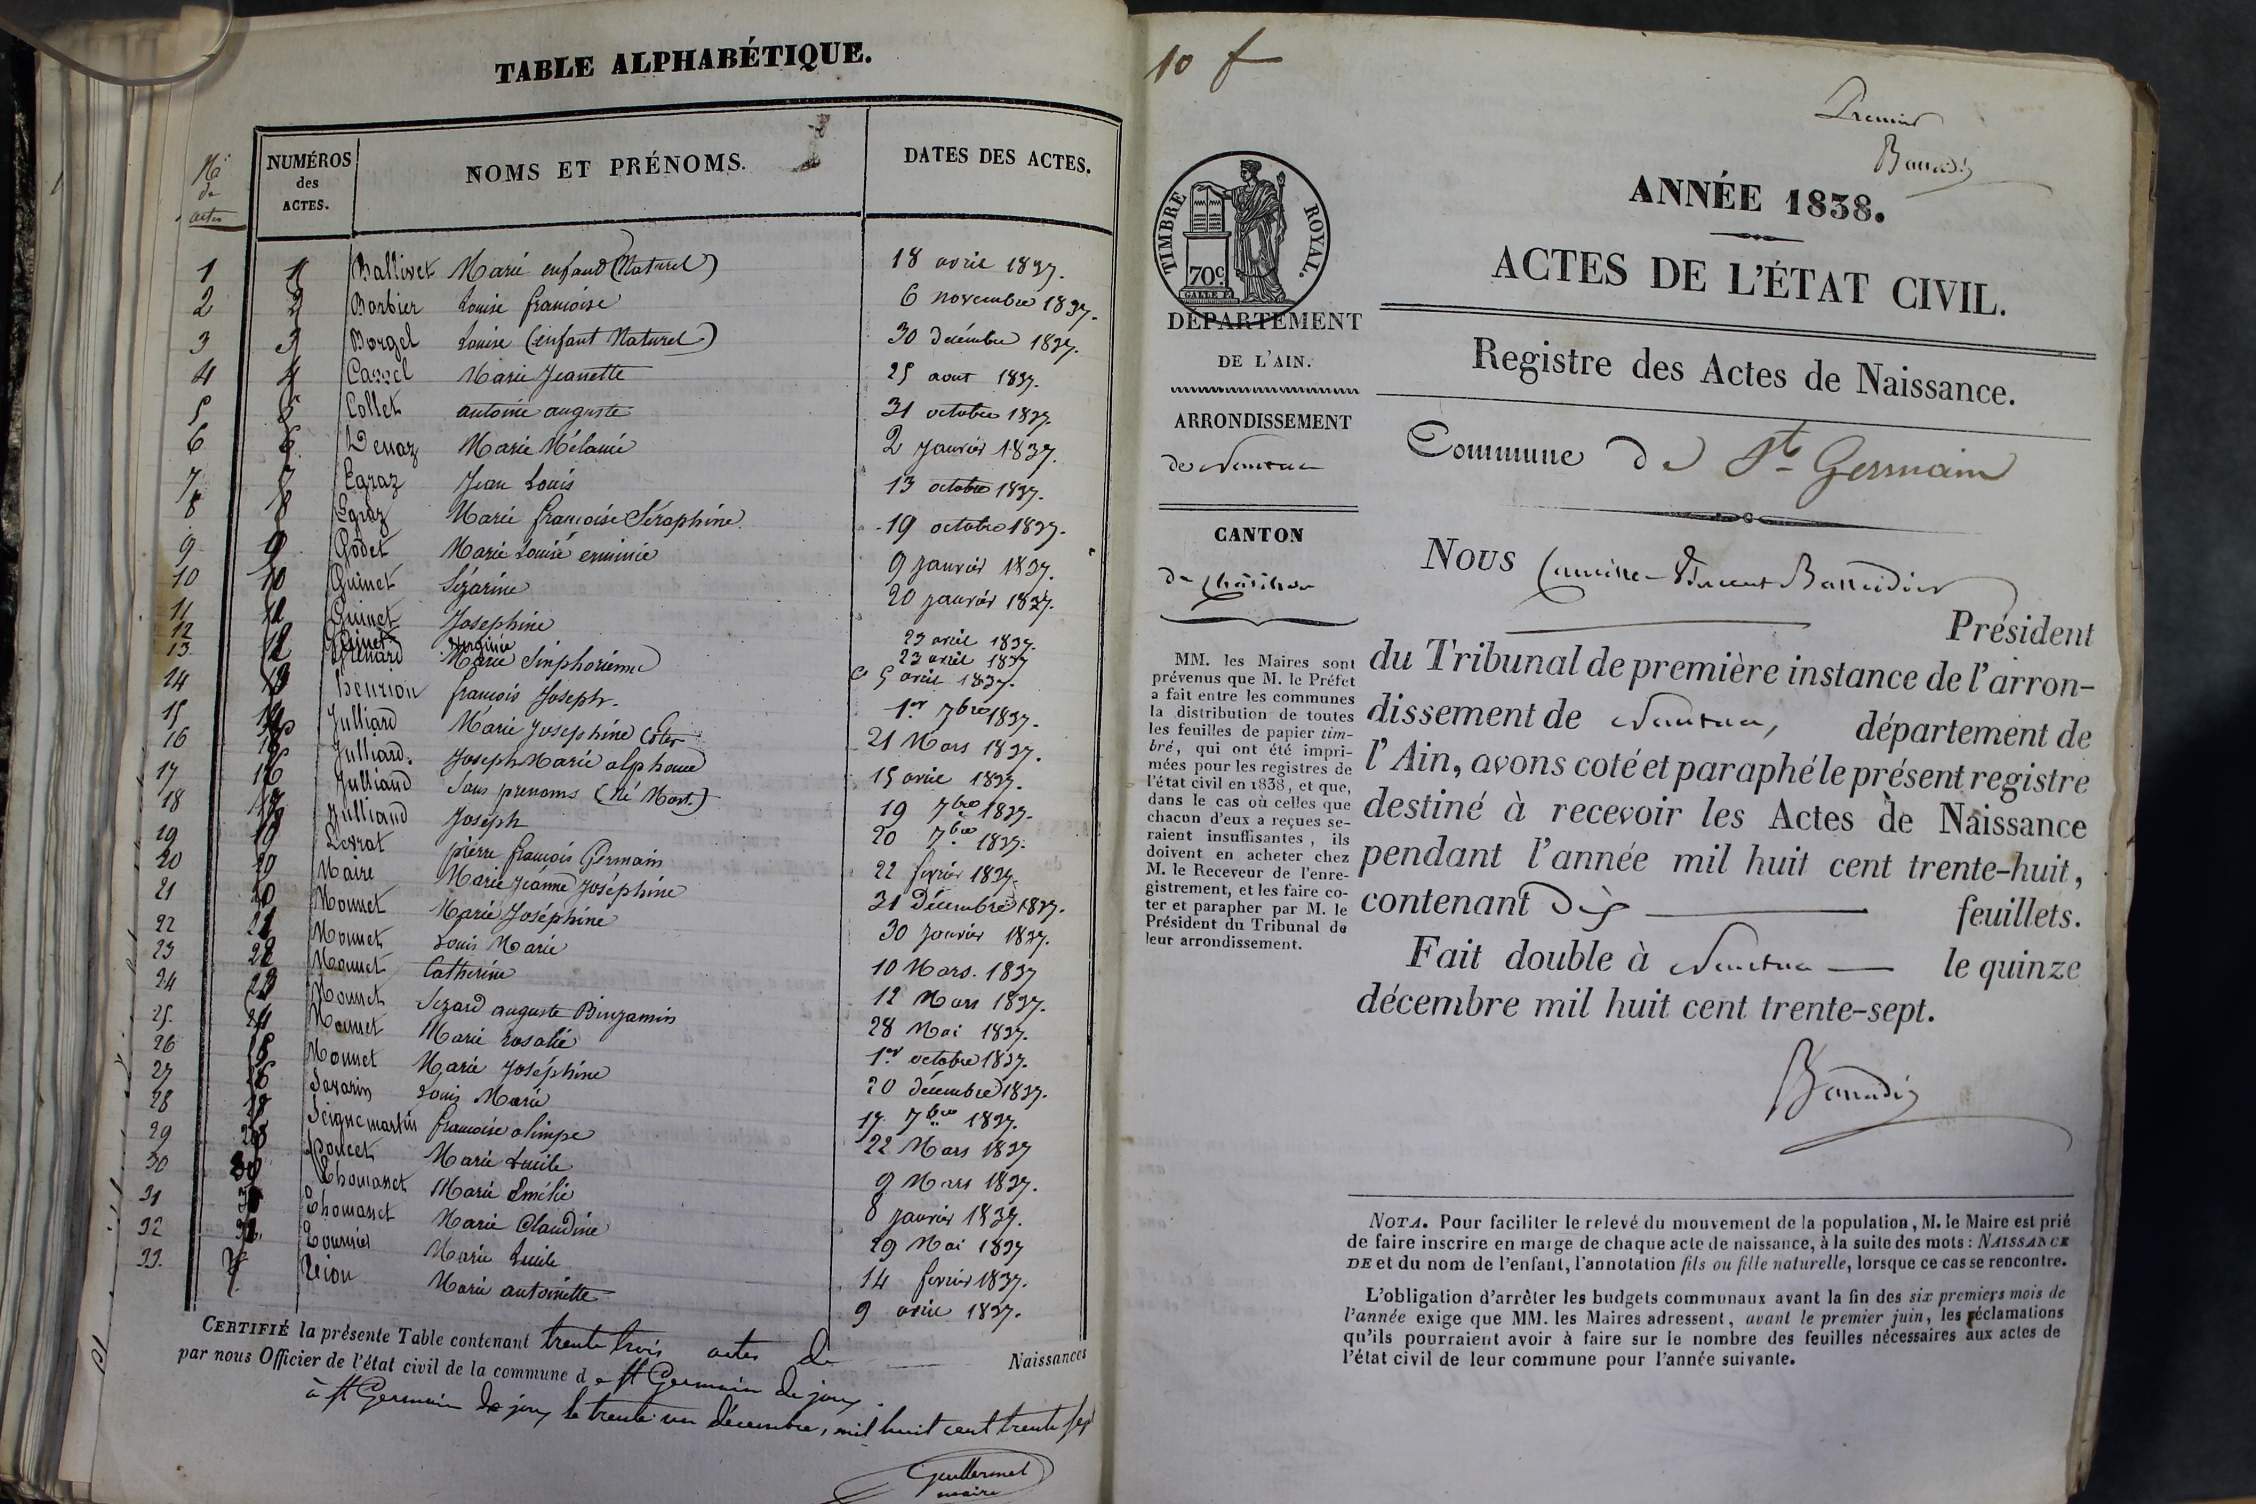 TABLE ALPHABÉTIQUE.
Nos de actes
NUMÉROS des ACTES. NOMS ET PRÉNOMS. DATES DES ACTES.
1 1 Ballivet Marie enfant (Naturel) 18 avril 1837.
2 2 Barbier Louise françoise 6 novembre 1837.
3 3 Borgel Louise (enfant Naturel) 30 décembre 1837.
4 4 Carrel Marie Jeanette 25 aout 1837.
5 5 Collet antoine auguste 31 octobre 1837.
6 6 Marie Mélanie 2 janvier 1837.
7 7 Egraz Jean Louis 13 octobre 1837.
8 8 Egraz Marie françoise Séraphine 19 octobre 1837.
9 9 Godet Marie Louise erminie 9 janvier 1837.
10 10 Guinet Sézarine 20 janvier 1837.
11 Guinet Josephine 23 avril 1837.
12 Guinet Virginie 23 avril 1837
13 Marie Sinphorienne 5 avril 1837.
14 Henrion françois Joseph. 1er 7bre 1837.
15 Julliard Marie Josephine Ester 21 Mars 1837.
16 Julliard. Joseph Marie alphonse 15 avril 1837.
17 16 Julliard Sans prenoms (Né Mort.) 19 7bre 1837.
18 Julliard Joseph 20 7bre 1837.
19 19 Levrat pierre françois Germain 22 fevrier 1837.
20 20 Maire Marie Jeanne Joséphine 31 Décembre 1837.
21 Monnet Marie Joséphine 30 janvier 1837.
22 Monnet Louis Marie 10 Mars. 1837
23 Monnet Catherine 12 Mars 1837.
24 Monnet Sezard auguste Binjamin 28 Mai 1837.
25. Monnet Marie rosalie 1er octobre 1837.
26 Monnet Marie Joséphine 20 décembre 1837.
27 Savarin Louis Marie 17 7bre 1837.
28 Seignemartin françoise olimpe 22 Mars 1837
29 poncet Marie Lucile 9 Mars 1837.
30 Thomasset Marie Emélie 8 janvier 1837.
31 Thomasset Marie Claudine 29 Mai 1837
32 Tournier Marie Lucile 14 fevrier 1837.
33. Marie antoinette 9 avril 1837.
CERTIFIÉ la présente Table contenant trente trois actes de Naissances
par nous Officier de l'état civil de la commune de St Germain de joux.
à St Germain de joux le trente un décembre, mil huit cent trente sept
Guillermet
maire
10 f
Premier
ANNÉE 1838.
ACTES DE L'ÉTAT CIVIL.
TIMBRE ROYAL.
70c.
DÉPARTEMENT
DE L'AIN.
ARRONDISSEMENT
de Nantua
CANTON
de Châtillon
MM. les Maires sont
prévenus que M. le Préfet
a fait entre les communes
la distribution de toutes
les feuilles de papier tim-
bré, qui ont été impri-
mées pour les registres de
l'état civil en 1838, et que,
dans le cas où celles que
chacon d'eux a reçues se-
raient insuffisantes, ils
doivent en acheter chez
M. le Receveur de l'enre-
gistrement, et les faire co-
ter et parapher par M. le
Président du Tribunal de
leur arrondissement.
Registre des Actes de Naissance.
Commune de St Germain
NOUS Vincent
Président
du Tribunal de première instance de l'arron-
dissement de Nantua, département de
l'Ain, avons coté et paraphé le présent registre
destiné à recevoir les Actes de Naissance
pendant l'année mil huit cent trente-huit,
contenant Dix feuillets.
Fait double à Nantua le quinze
décembre mil huit cent trente-sept.
NOTA. Pour faciliter le relevé du mouvement de la population, M. le Maire est prié
de faire inscrire en marge de chaque acte de naissance, à la suite des mots : NAISSANCE
DE et du nom de l'enfant, l'annotation fils ou fille naturelle, lorsque ce cas se rencontre.
L'obligation d'arrêter les budgets communaux avant la fin des six premiers mois de
l'année exige que MM. les Maires adressent, avant le premier juin, les réclamations
qu'ils pourraient avoir à faire sur le nombre des feuilles nécessaires aux actes de
l'état civil de leur commune pour l'année suivante.